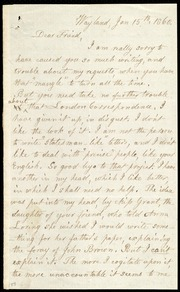 Wayland, Jan 15th, 1860.
Dear Friend,
I am really sorry to
have caused you so much writing, and
trouble about my requests, when you have
that "mangle" to turn all the time.
But you need take no further trouble
about
that London Correspondence. I
have given it up in disgust. I don't
like the look of it. I am not the person
to write Statesman-like letters, and I don't
like to deal with princes' people, like you
English. So good bye to that project. I have
another in my head, which I like better,
in which I shall need no help. The idea
was put into my head, by
the
daughter of your friend, who told Anna
Loring she wished I would write some-
thing for her father's paper, explaining
the foray of John Brown. But I can't
explain it. The more I cogitate upon it
the more unaccountable it seems to me